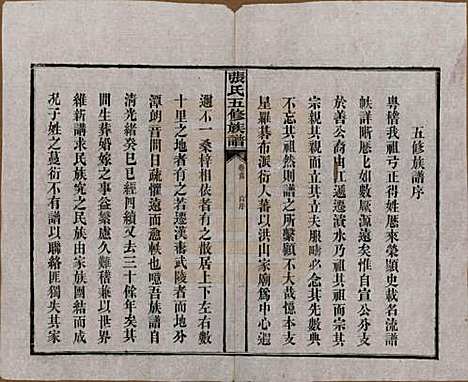 五修族譜序
粵稽我祖弓正得姓厯來榮顯史載名流譜
帙詳晰厯厯如數厥源遠矣惟自宣公分支
於善公裔由江遞遷資水乃祖其祖而宗其
宗親其所親矣丈夫服疇必念其先數典
不忘其祖然則譜之所繫顧不大哉憶本支
星羅碁布派衍人蕃以洪山家廟爲中心遐
張氏五修族譜
卷首
邇不一桑梓相依者有之散居上下左右數
十里之地者有之或若遷漢壽武陵者而地分
潭朗音問日疏懼遠而愈軼也噫吾族譜自
清光緒癸巳已經四續又去三十餘年矣其
間生葬婚嫁之事益繁處久難稽兼以世界
維新講求民族究之民族由家族團結而成
況子姓之蔓衍不有譜以聯絡匪獨失其家